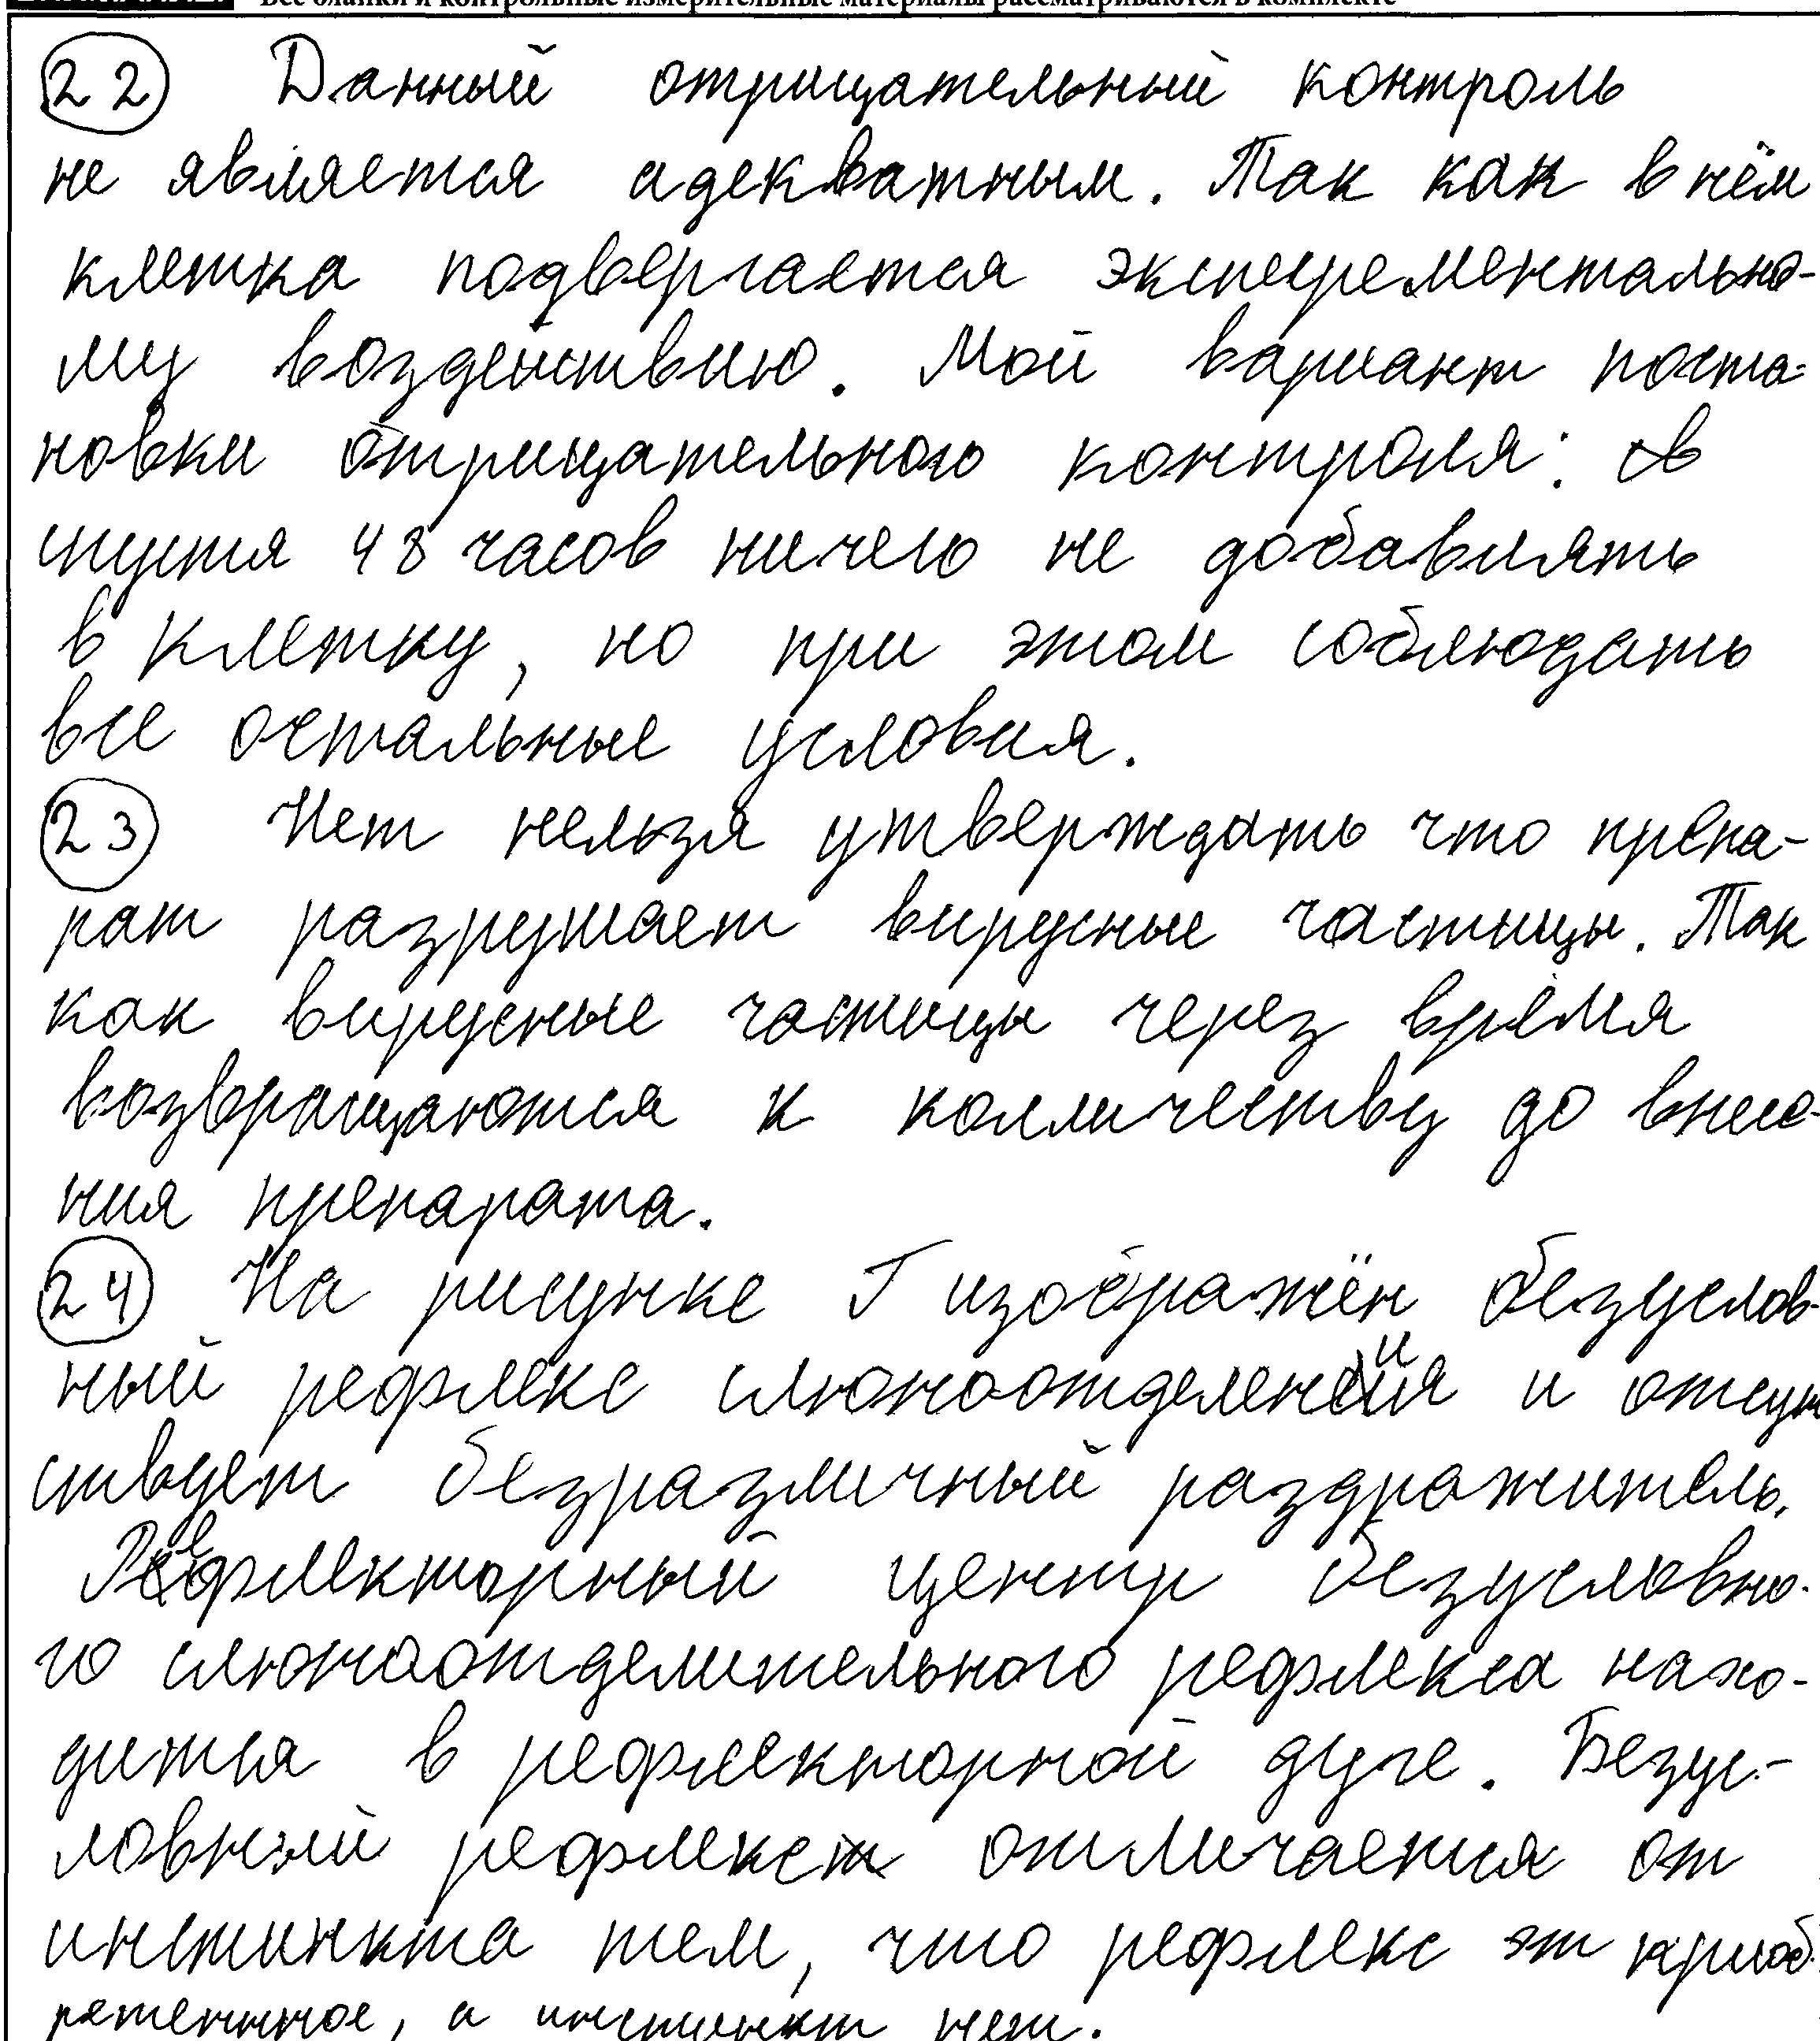 Все бланки и контрольные измерительные материалы рассматриваются в комплекте
22 Данный отрицательный контроль
не является адекватным. Так как в нём
клетка подвергается эксперементально-
му воздействию. Мой вариант поста-
новки отрицательного контроля: в
спустя 48 часов ничего не добавлять
в клетку, но при этом соблюдать
все остальные условия.
23 Нет нельзя утверждать что препа-
рат разрушает вирусные частицы. Так
как вирусные частицы через время
возвращаются к колличеству до внесе-
ния препарата.
24 На рисунке Г изображён безуслов-
ный рефлекс слюноотделения и отсут
ствует безразличный раздражитель.
Рефлекторный центр безусловно-
го слюноотделительного рефлекса нахо-
дится в рефлекторной дуге. Безус-
ловный рефлекс отличается от
инстинкта тем, что рефлекс эт приоб
ретенное, а инстинкт нет.